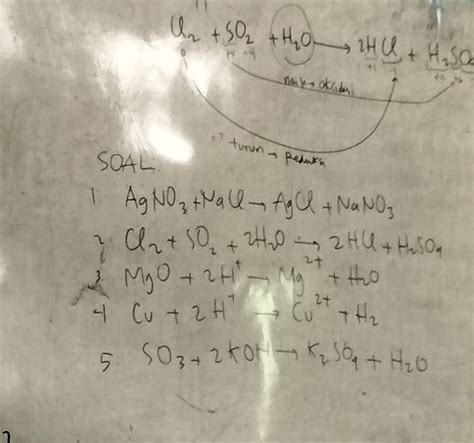 Cl2 + SO2 + H2O → 2HCl + H2SO
0 +4 +1 -1
naik → oksidasi
turun → Reduksi
SOAL
1 AgNO3 + NaCl → AgCl + NaNO3
2. Cl2 + SO2 + 2H2O → 2HCl + H2SO4
3 MgO + 2H+ → Mg2+ + H2O
4 Cu + 2H+ → Cu2+ + H2
5. SO3 + 2KOH → K2SO4 + H2O